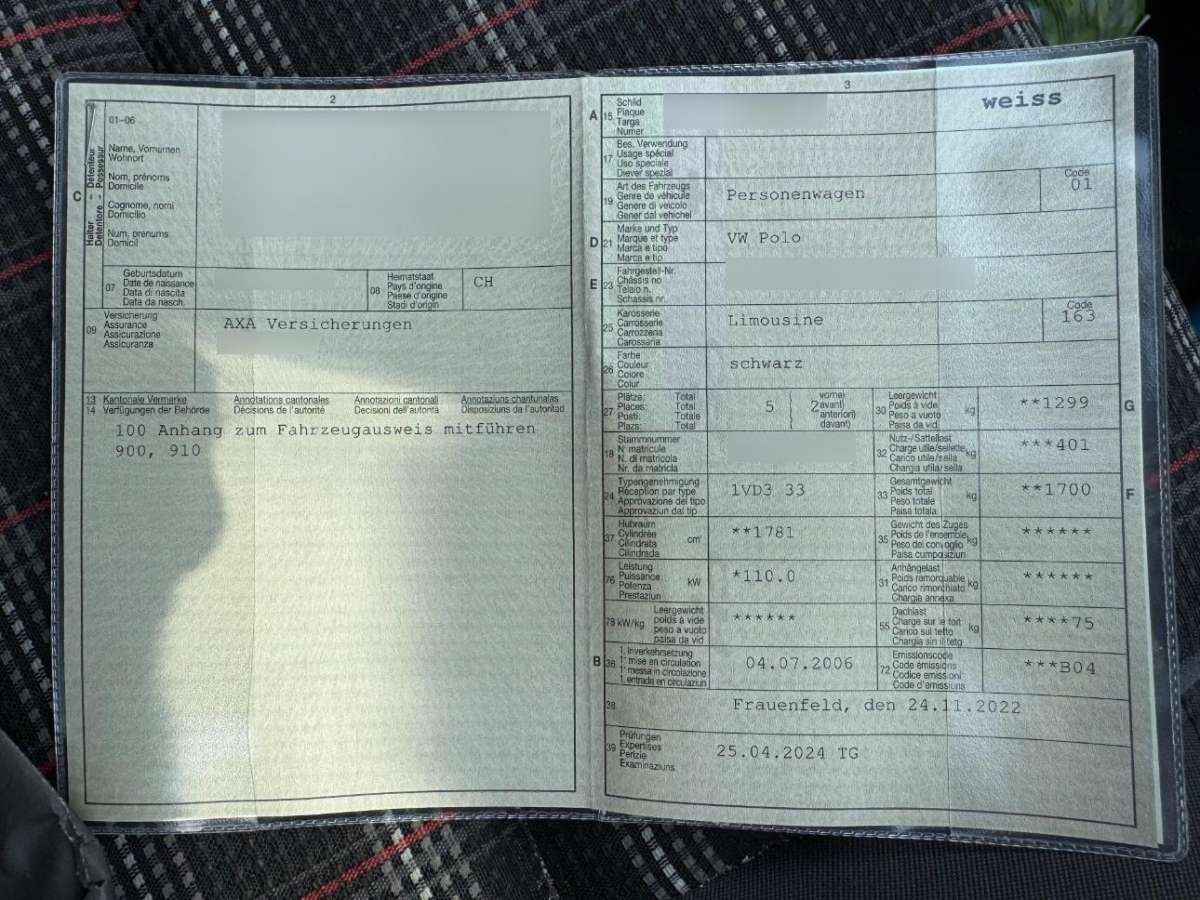 2
01-06
Name, Vornamen
Wohnort
Nom, prénoms
Domicile
Cognome, nomi
Domicilio
Num, prenums
Domicil
C
Halter - Détenteur
Detentore - Possessur
07
Geburtsdatum
Date de naissance
Data di nascita
Data da nasch.
08
Heimatstaat
Pays d'origine
Paese d'origine
Stadi d'origin
CH
09
Versicherung
Assurance
Assicurazione
Assicuranza
AXA Versicherungen
13 Kantonale Vermerke Annotations cantonales Annotazioni cantonali Annotaziuns chantunalas
14 Verfügungen der Behörde Décisions de l'autorité Decisioni dell'autorità Disposiziuns da l'autoritad
100 Anhang zum Fahrzeugausweis mitführen
900, 910
3
A 15
Schild
Plaque
Targa
Numer
weiss
17
Bes. Verwendung
Usage spécial
Uso speciale
Diever spezial
19
Art des Fahrzeugs
Genre de véhicule
Genere di veicolo
Gener dal vehichel
Personenwagen
Code
01
D 21
Marke und Typ
Marque et type
Marca e tipo
Marca e tip
VW Polo
E 23
Fahrgestell-Nr.
Châssis no
Telaio n.
Schassis nr.
25
Karosserie
Carrosserie
Carrozzeria
Carossaria
Limousine
Code
163
26
Farbe
Couleur
Colore
Colur
schwarz
27
Plätze: Total
Places: Total
Posti: Totale
Plazs: Total
5
2
vorne)
avant)
anteriori)
davant)
30
Leergewicht
Poids à vide
Peso a vuoto
Paisa da vid
kg
**1299
G
18
Stammnummer
N° matricule
N. di matricola
Nr. da matricla
32
Nutz-/Sattellast
Charge utile/sellette
Carico utile/sella
Chargia utila/sella
kg
***401
24
Typengenehmigung
Réception par type
Approvazione del tipo
Approvaziun dal tip
1VD3 33
33
Gesamtgewicht
Poids total
Peso totale
Paisa totala
kg
**1700
F
37
Hubraum
Cylindrée
Cilindrata
Cilindrada
cm³
**1781
35
Gewicht des Zuges
Poids de l'ensemble
Peso del convoglio
Paisa cumposiziun
kg
******
76
Leistung
Puissance
Potenza
Prestaziun
kW
*110.0
31
Anhängelast
Poids remorquable
Carico rimorchiato
Chargia annexa
kg
******
78 kW/kg
Leergewicht
poids à vide
peso a vuoto
paisa da vid
******
55
Dachlast
Charge sur le toit
Carico sul tetto
Chargia sin il tetg
kg
****75
B 36
1. Inverkehrsetzung
1re mise en circulation
1a messa in circolazione
1. entrada en circulaziun
04.07.2006
72
Emissionscode
Code émissions
Codice emissioni
Code d'emissiuns
***B04
38
Frauenfeld, den 24.11.2022
39
Prüfungen
Expertises
Perizie
Examinaziuns
25.04.2024 TG